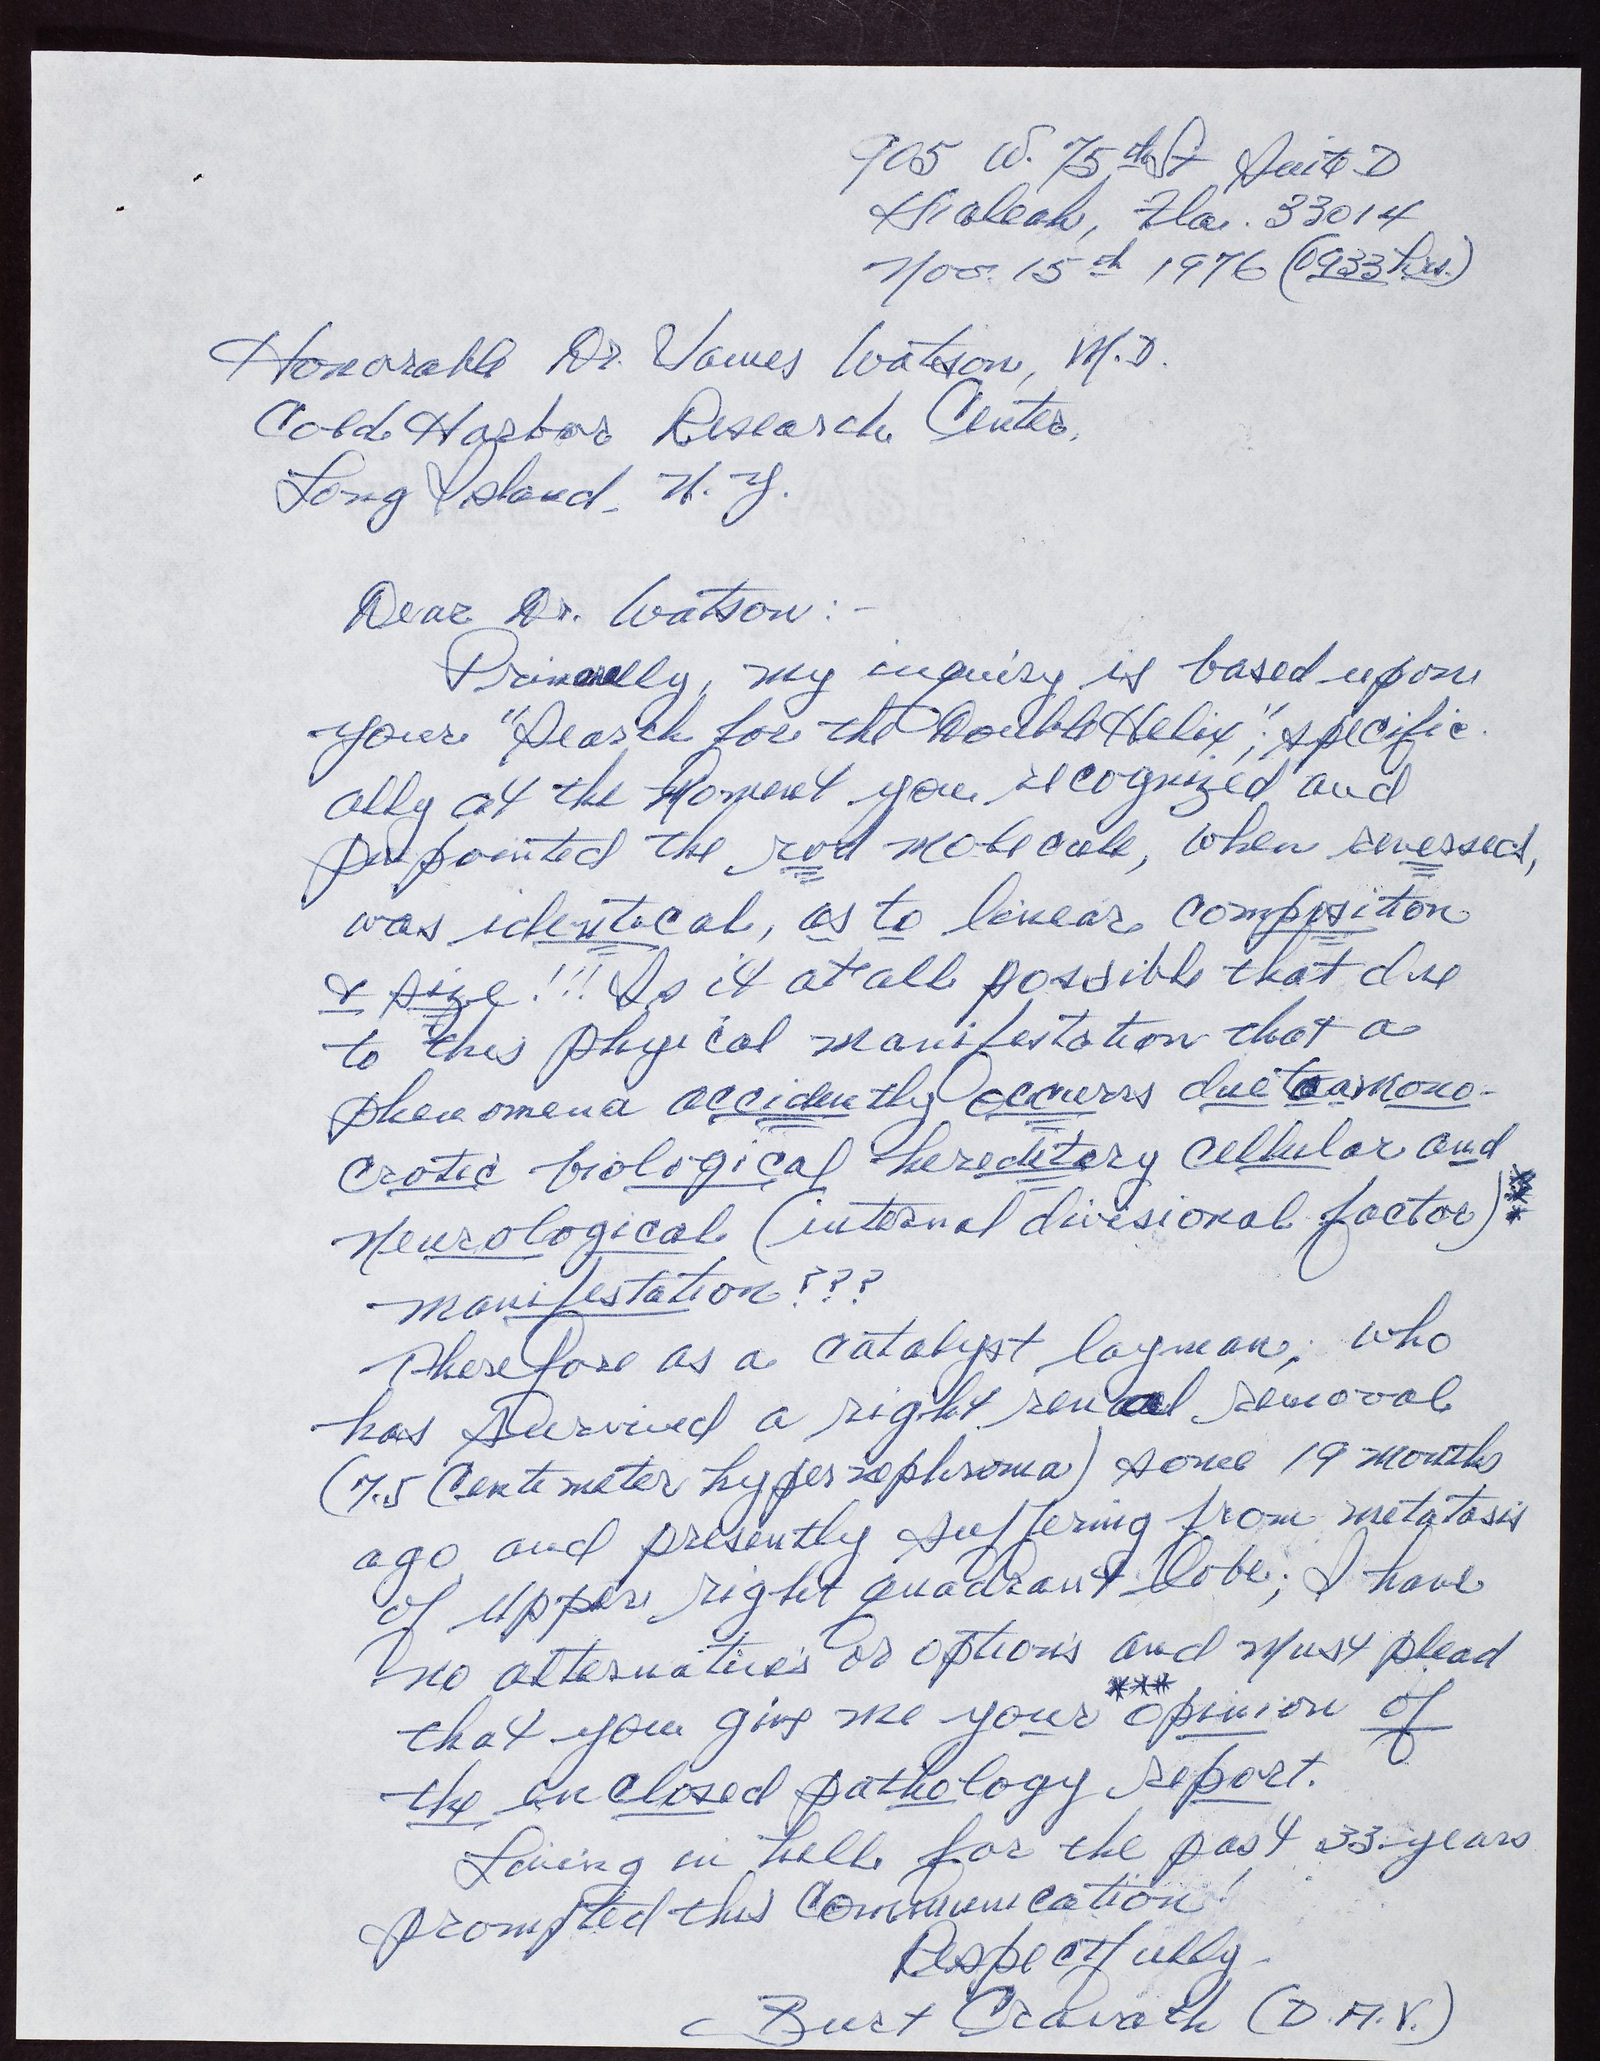 905 W. 75th St Suite D
Hialeah, Fla. 33014
Nov. 15th 1976 (0933 hrs.)
Honorable Dr. James Watson, M.D.
Cold Harbor Research Center,
Long Island, N.Y.
Dear Dr. Watson:-
Primarelly, my inquiry is based upon
your "Search for the Double Helix"; specific-
ally at the moment you recognized and
pinpointed the rod molecule, when reversed,
was identical, as to linear compsition
& size!!! Is it at all possible that due
to this physical manifestation that a
phenomena accidently occurrs due to a mono-
crotic biological hereditary cellular and
neurological (internal divisional factor)***
manifestation???
Therefore as a catalyst layman, who
has survived a right renal removal
(7.5 Centimeter hypernephroma) some 19 months
ago and presently suffering from metatasis
of upper right quadrant lobe; I have
no alternatives or options and must plead
***
that you give me your opinion of
the enclosed pathology report.
Living in hell for the past 33 years
prompted this communication!
Respectfully-
Burt Cravath (D.A.V.)